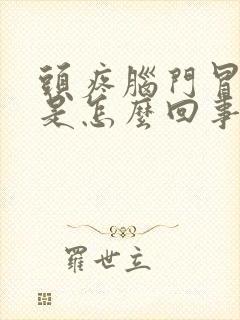 頭疼腦門冒
是怎麼回事
羅世立